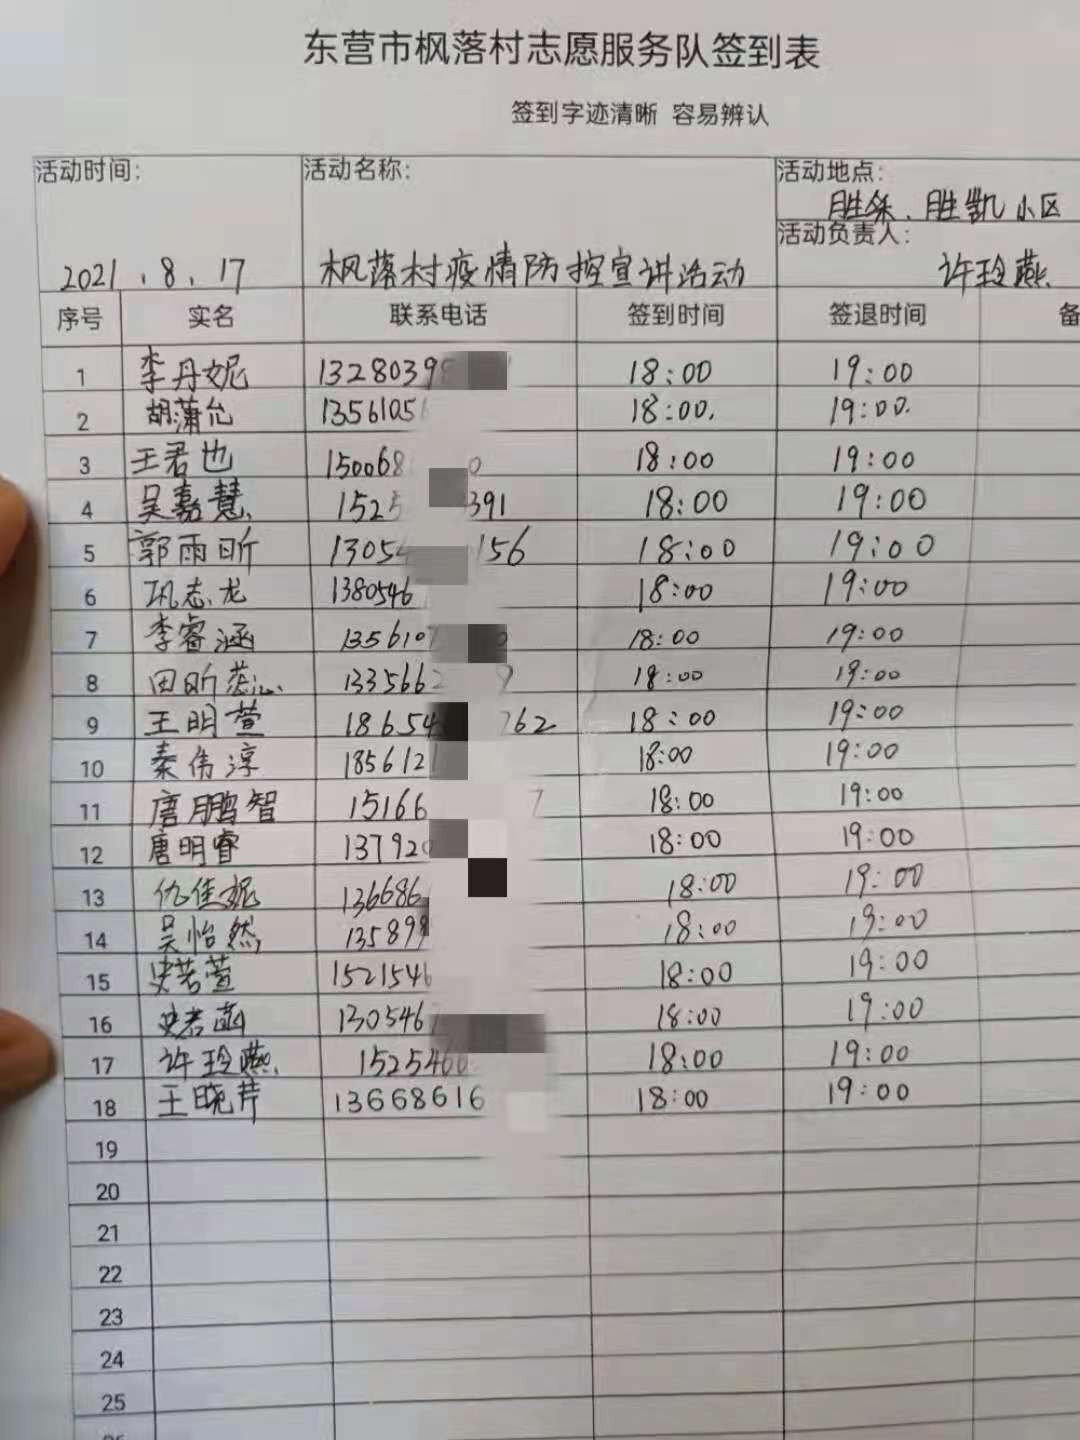 东营市枫落村志愿服务队签到表
签到字迹清晰 容易辨认
活动时间: 活动名称: 活动地点:
胜采、胜凯小区
活动负责人:
2021.8.17 枫落村疫情防控宣讲活动 许玲燕
序号 实名 联系电话 签到时间 签退时间 备
1 李丹妮 1328039 18:00 19:00
2 胡蒲允 1356105 18:00. 19:00.
3 王君也 150068 0 18:00 19:00
4 吴嘉慧 1525 391 18:00 19:00
5 郭雨昕 13054 156 18:00 19:00
6 巩志龙 1380546 18:00 19:00
7 李睿涵 1356107 18:00 19:00
8 田昕 1335662 9 18:00 19:00
9 王明萱 18654 762 18:00 19:00
10 秦伟淳 185612 18:00 19:00
11 唐鹏智 15166 7 18:00 19:00
12 唐明睿 13792 18:00 19:00
13 仇佳妮 136686 18:00 19:00
14 吴怡然 135899 18:00 19:00
15 史若萱 1521546 18:00 19:00
16 史若菡 130546 18:00 19:00
17 许玲燕 1525460 18:00 19:00
18 王晓芹 13668616 18:00 19:00
19
20
21
22
23
24
25